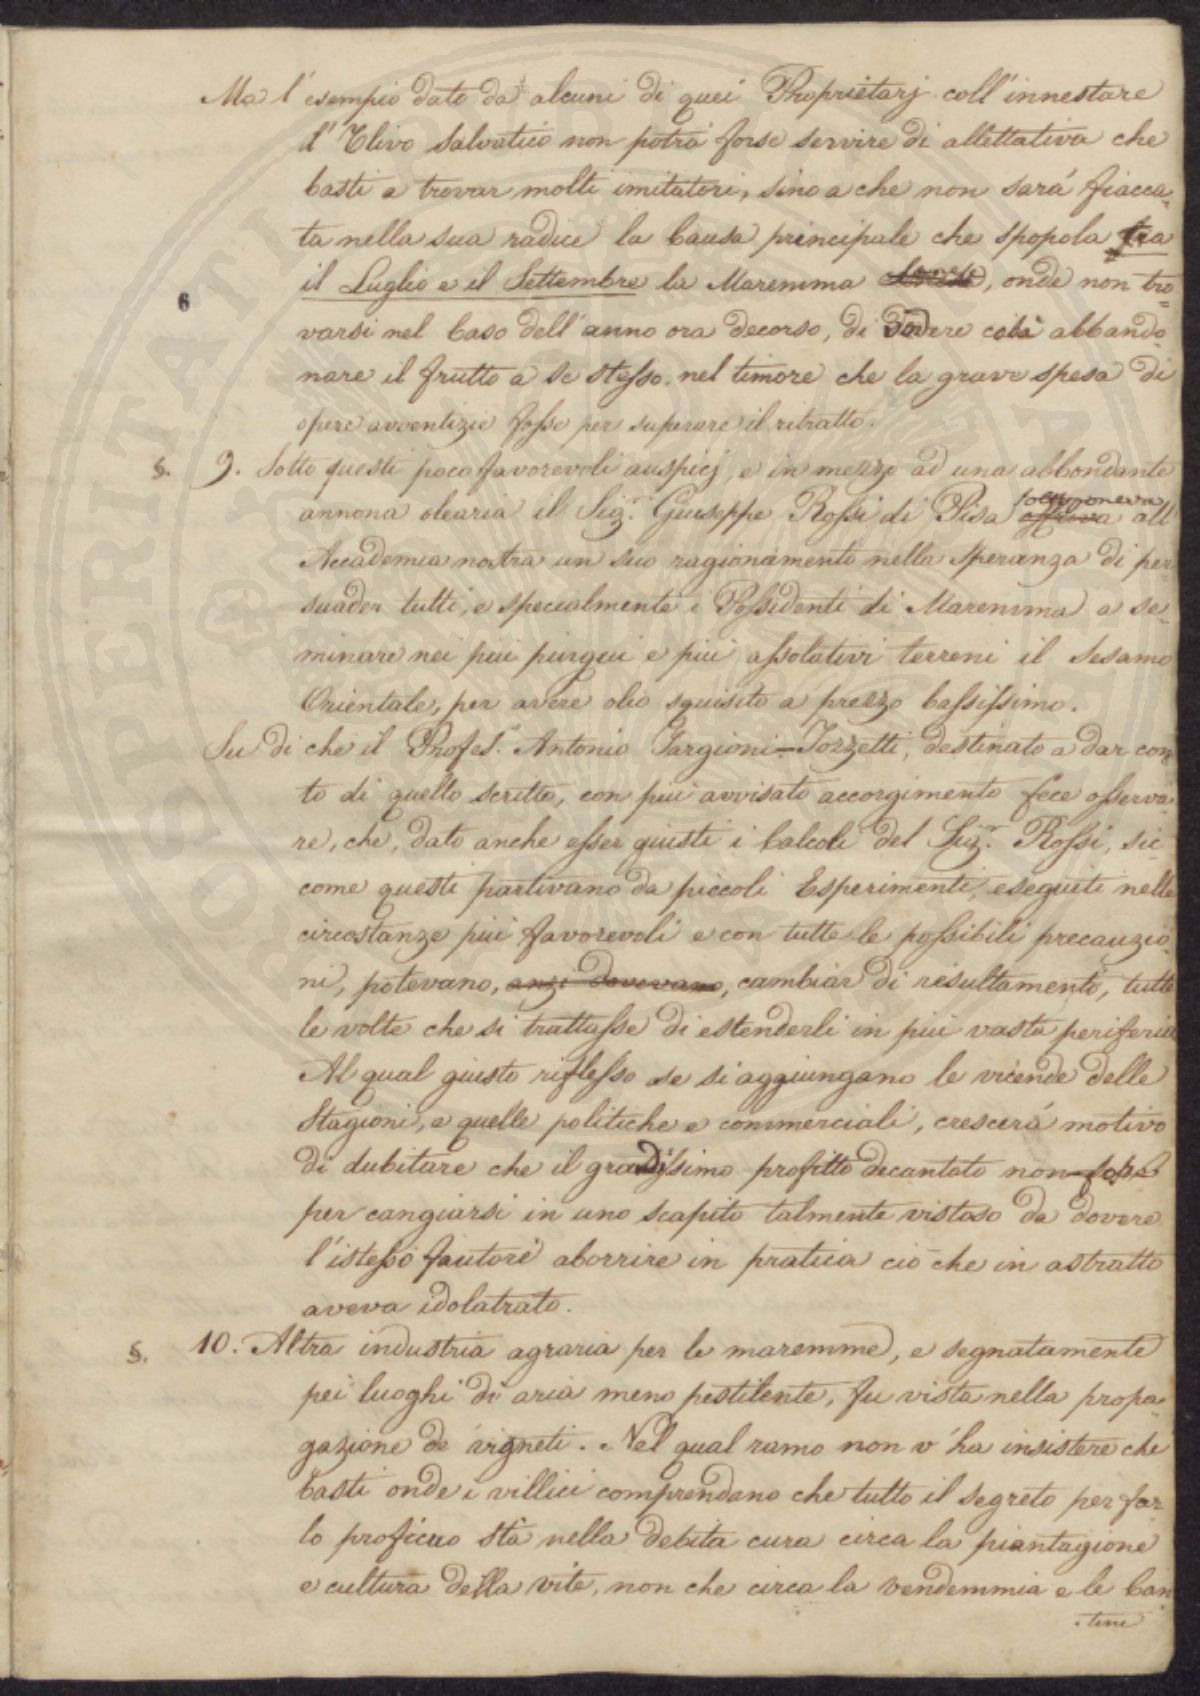 Ma l'esempio dato da alcuni di quei Proprietarj coll'innestare
l'Olivo Salvatico non potrà forse servire di allettativa che
basti a trovar molti imitatori, sino a che non sarà fiacca-
ta nella sua radice la Causa principale che spopola tra
il Luglio e il Settembre la Maremma, onde non tro-
6
varsi nel Caso dell'anno ora decorso, di dovere colà abbando-
nare il frutto a se stesso, nel timore che la grave spesa di
opere avventizie fosse per superare il ritratto.
§. 9. Sotto questi poco favorevoli auspicj, e in mezzo ad una abbondante
annona olearia il Sig.r Giuseppe Rossi di Pisa offriva sottoponeva all'
Accademia nostra un suo ragionamento nella speranza di per-
suader tutti, e specialmente i Possidenti di Maremma a se-
minare nei più pingui e più assolativi terreni il Sesamo
Orientale, per avere olio squisito a prezzo bassissimo.
Su di che il Profes.r Antonio Targioni-Tozzetti, destinato a dar con-
to di quello scritto, con più avvisato accorgimento fece osserva-
re, che, dato anche esser giusti i Calcoli del Sig.r Rossi, sic-
come questi partivano da piccoli Esperimenti, eseguiti nelle
circostanze più favorevoli e con tutte le possibili precauzio-
ni, potevano, anzi dovevano, cambiar di risultamento, tutte
le volte che si trattasse di estenderli in più vasta periferia
Al qual giusto riflesso se si aggiungano le vicende delle
Stagioni, e quelle politiche e commerciali, crescerà motivo
di dubitare che il grandissimo profitto decantato non fosse
per cangiarsi in uno scapito talmente vistoso da dovere
l'istesso fautore aborrire in pratica ciò che in astratto
aveva idolatrato.
§. 10. Altra industria agraria per le maremme, e segnatamente
pei luoghi di aria meno pestilente, fu vista nella propa-
gazione de' vigneti. Nel qual ramo non v'ha insistere che
basti onde i villici comprendano che tutto il segreto per far
lo proficuo stà nella debita cura circa la piantagione
e cultura della vite, non che circa la vendemmia e le Can-
tine